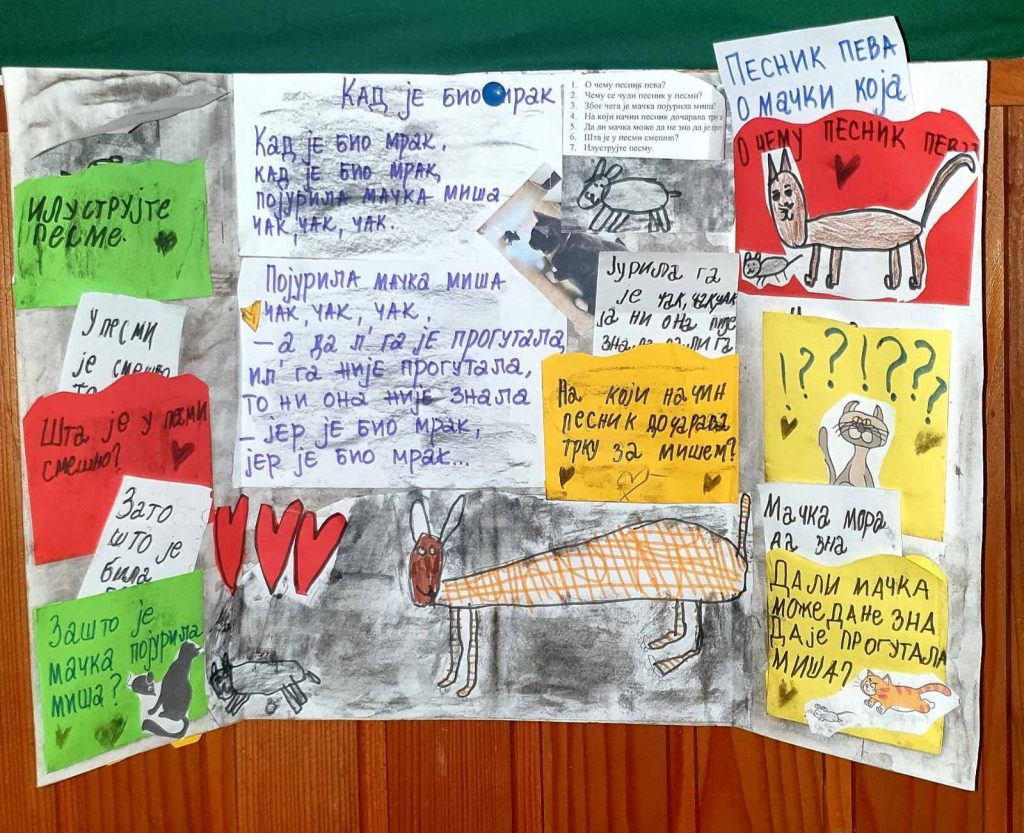 ПЕСНИК ПЕВА
О МАЧКИ КОЈА
О ЧЕМУ ПЕСНИК ПЕВА
КАД ЈЕ БИО МРАК
КАД ЈЕ БИО МРАК,
КАД ЈЕ БИО МРАК,
ПОЈУРИЛА МАЧКА МИША
ЧАК, ЧАК, ЧАК.
ПОЈУРИЛА МАЧКА МИША
ЧАК, ЧАК, ЧАК,
– А ДА Л' ГА ЈЕ ПРОГУТАЛА,
ИЛ' ГА НИЈЕ ПРОГУТАЛА,
ТО НИ ОНА НИЈЕ ЗНАЛА
– ЈЕР ЈЕ БИО МРАК,
ЈЕР ЈЕ БИО МРАК...
1. О чему песник пева?
2. Чему се чуди песник у песми?
3. Због чега је мачка појурила миша
4. На који начин песник дочарава
5. Да ли мачка може да не зна да је
6. Шта је у песми смешно?
7. Илуструјте песму.
ИЛУСТРУЈТЕ
ПЕСМЕ.
У ПЕСМИ
ЈЕ СМЕШНО
ШТА ЈЕ У ПЕСМИ
СМЕШНО?
ЗАТО
ШТО ЈЕ
БИЛА
ЗАШТО ЈЕ
МАЧКА ПОЈУРИЛА
МИША?
ЈУРИЛА ГА
ЈЕ ЧАК, ЧАК, ЧАК
НИ ОНА
НА КОЈИ НАЧИН
ПЕСНИК ДОЧАРАВА
ТРКУ ЗА МИШЕМ?
!??!???
МАЧКА МОРА
ДА ЗНА
ДА ЛИ МАЧКА
МОЖЕ ДА НЕ ЗНА
ДА ЈЕ ПРОГУТАЛА
МИША?